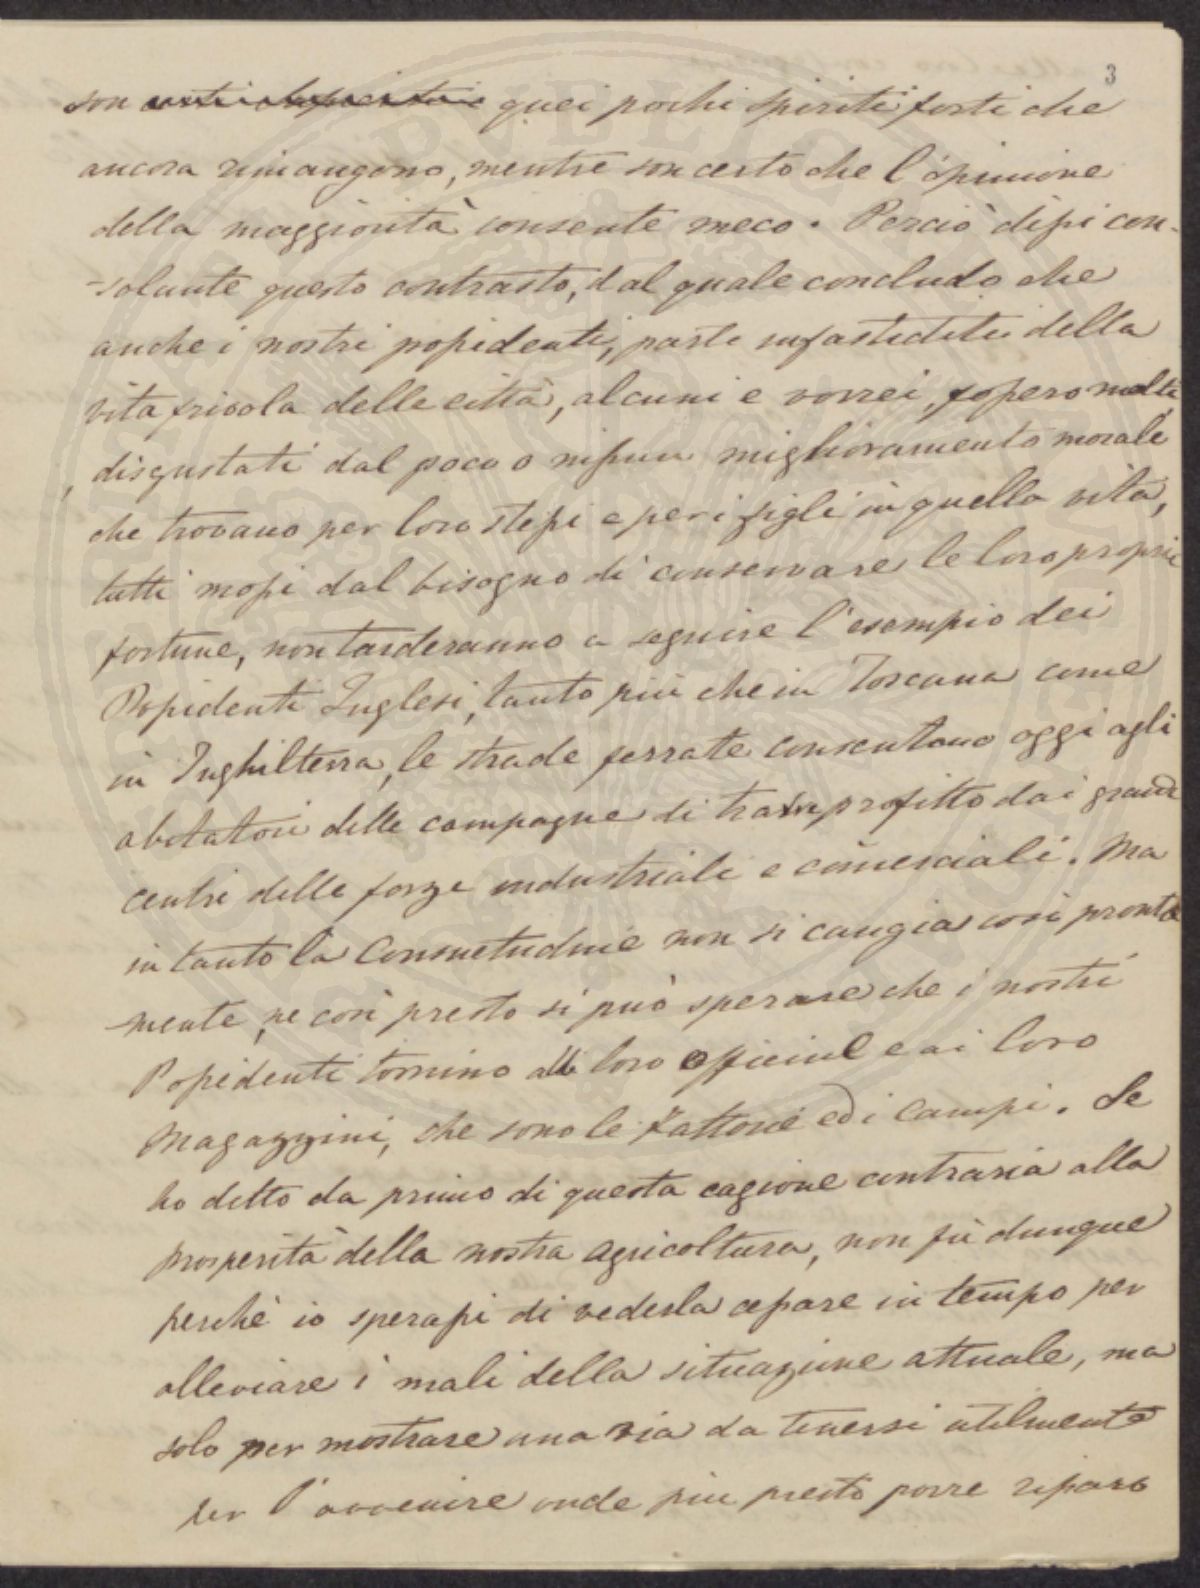 3
son quei pochi spiriti forti che
ancora rimangono, mentre son certo che l'opinione
della maggiorità consente meco. Perciò dissi con-
-solante questo contrasto, dal quale concludo che
anche i nostri possidenti, parte infastiditi della
vita frivola delle città, alcuni e vorrei, fossero molti
, disgustati dal poco o nissun miglioramento morale
che trovano per loro stessi e per i figli in quella vita,
tutti mossi dal bisogno di conservare le loro proprie
fortune, non tarderanno a seguire l'esempio dei
Possidenti Inglesi, tanto più che in Toscana come
in Inghilterra, le strade ferrate consentono oggi agli
abitatori delle campagne di trar profitto dai grandi
centri delle forze industriali e comerciali. Ma
in tanto la Consuetudine non si cangia così pronta
-mente, ne così presto si può sperare che i nostri
Possidenti tornino alle loro Officine e ai loro
Magazzini, che sono le Fattorie ed i Campi. Se
ho detto da primo di questa cagione contraria alla
prosperità della nostra agricoltura, non fù dunque
perchè io sperassi di vederla cessare in tempo per
alleviare i mali della situazione attuale, ma
solo per mostrare una via da tenersi utilmente
per l'avvenire onde più presto porre riparo